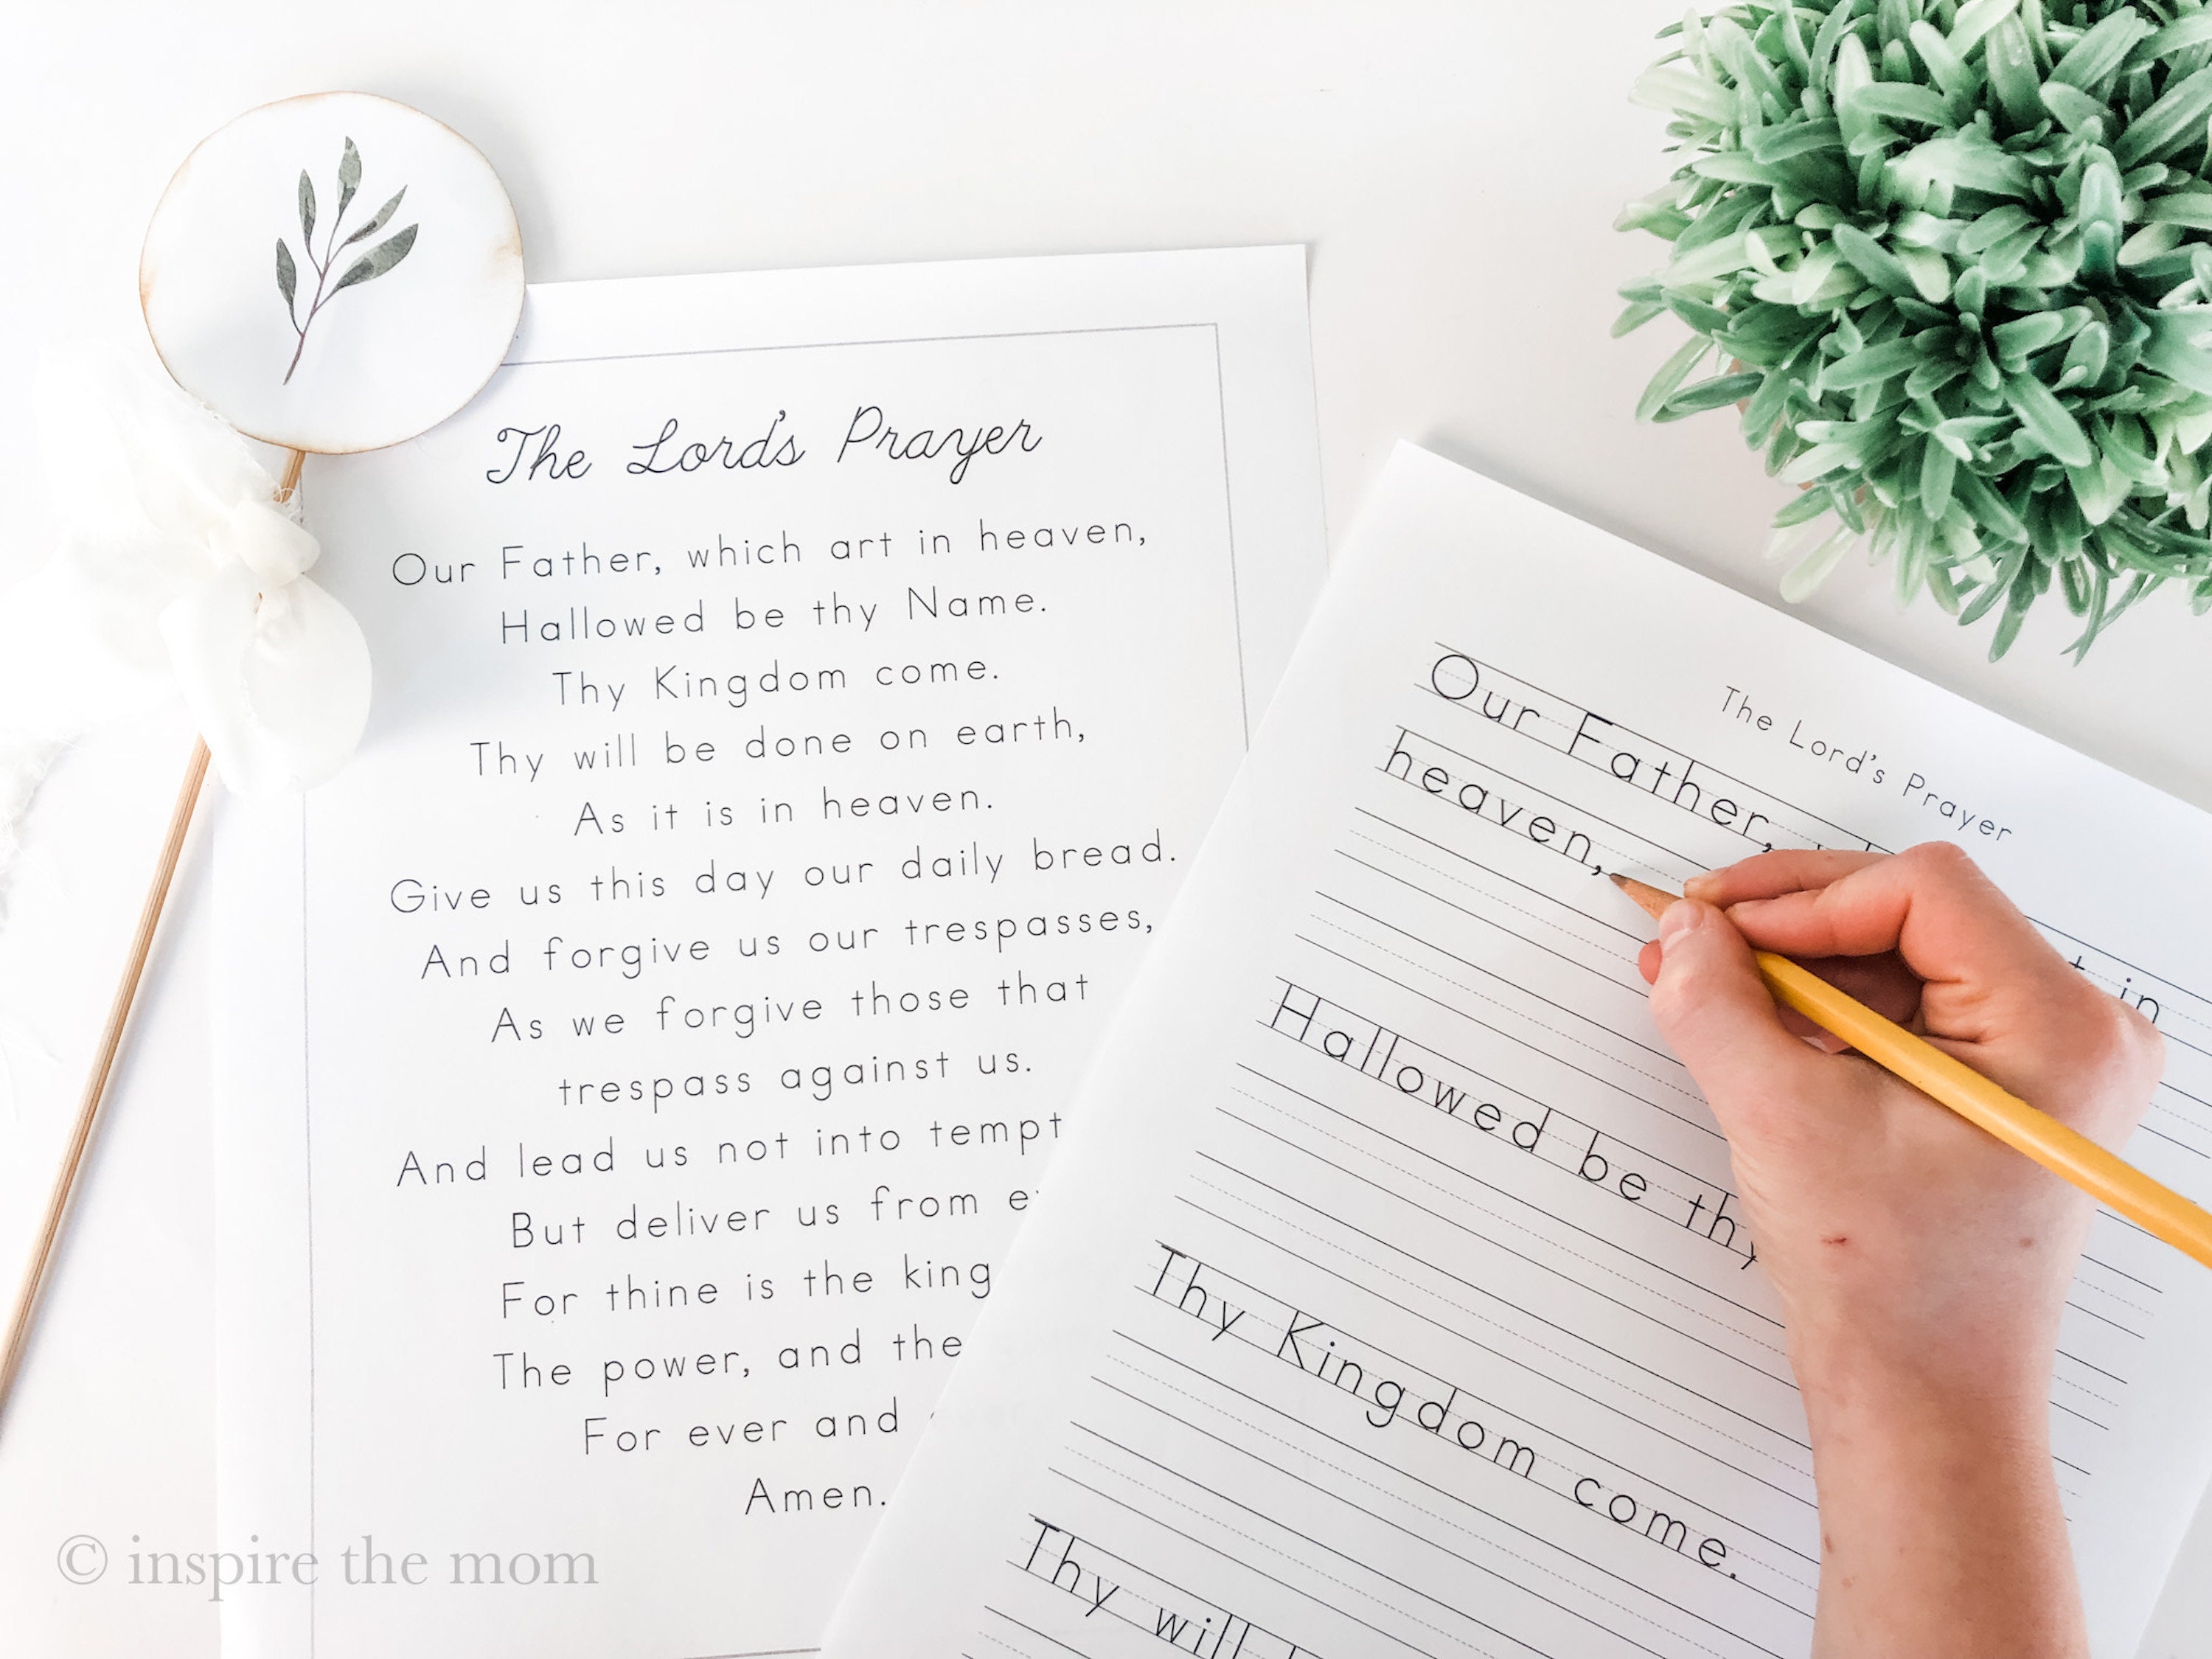 The Lord's Prayer
Our Father, which art in heaven,
Hallowed be thy Name.
Thy Kingdom come.
Thy will be done on earth,
As it is in heaven.
Give us this day our daily bread.
And forgive us our trespasses,
As we forgive those that
trespass against us.
And lead us not into
But deliver us from
For thine is the
The power, and the
For ever and
Amen.
The Lord's Prayer
Our Father, in
heaven,
Hallowed be
Thy Kingdom come.
Thy will
© inspire the mom